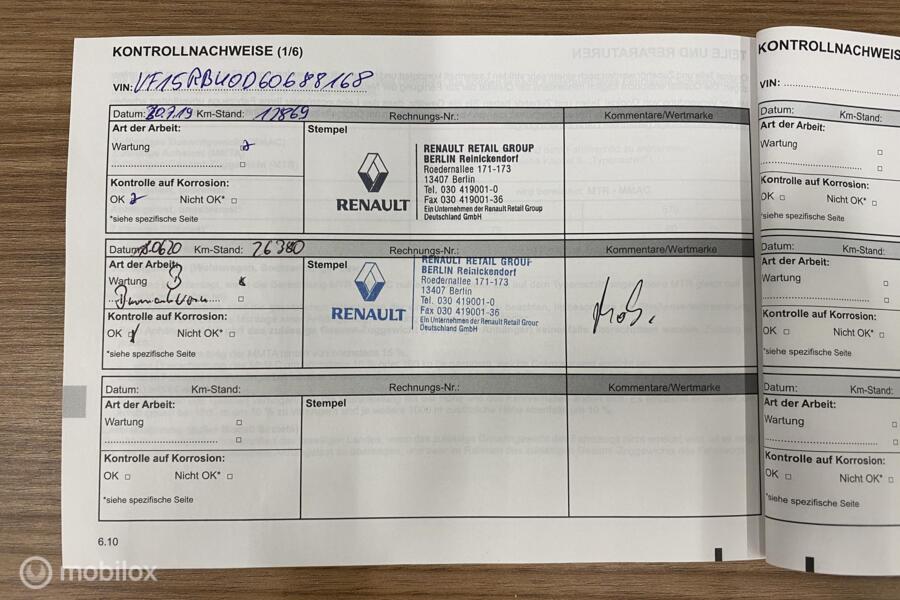 KONTROLLNACHWEISE (1/6)
VIN: VF15RBU0D60688168
Datum: 30.7.19 Km-Stand: 17869 Rechnungs-Nr.: Kommentare/Wertmarke
Art der Arbeit: Stempel
Wartung
RENAULT RETAIL GROUP
BERLIN Reinickendorf
Roedernallee 171-173
13407 Berlin
Tel. 030 419001-0
Fax 030 419001-36
Ein Unternehmen der Renault Retail Group
Deutschland GmbH
RENAULT
Kontrolle auf Korrosion:
OK Nicht OK*
*siehe spezifische Seite
Datum: Km-Stand: 26380 Rechnungs-Nr.: Kommentare/Wertmarke
Art der Arbeit: Stempel
Wartung
RENAULT RETAIL GROUP
BERLIN Reinickendorf
Roedernallee 171-173
13407 Berlin
Tel. 030 419001-0
Fax 030 419001-36
Ein Unternehmen der Renault Retail Group
Deutschland GmbH
RENAULT
Kontrolle auf Korrosion:
OK Nicht OK*
*siehe spezifische Seite
Datum: Km-Stand: Rechnungs-Nr.: Kommentare/Wertmarke
Art der Arbeit: Stempel
Wartung
Kontrolle auf Korrosion:
OK Nicht OK*
*siehe spezifische Seite
6.10
KONTROLLNACHWEIS
VIN:
Datum: Km-Stand:
Art der Arbeit:
Wartung
Kontrolle auf Korrosion:
OK Nicht OK*
*siehe spezifische Seite
Datum: Km-Stand:
Art der Arbeit:
Wartung
Kontrolle auf Korrosion:
OK Nicht OK*
*siehe spezifische Seite
Datum: Km-Stand:
Art der Arbeit:
Wartung
Kontrolle auf Korrosion:
OK Nicht OK*
*siehe spezifische Seite
mobilox